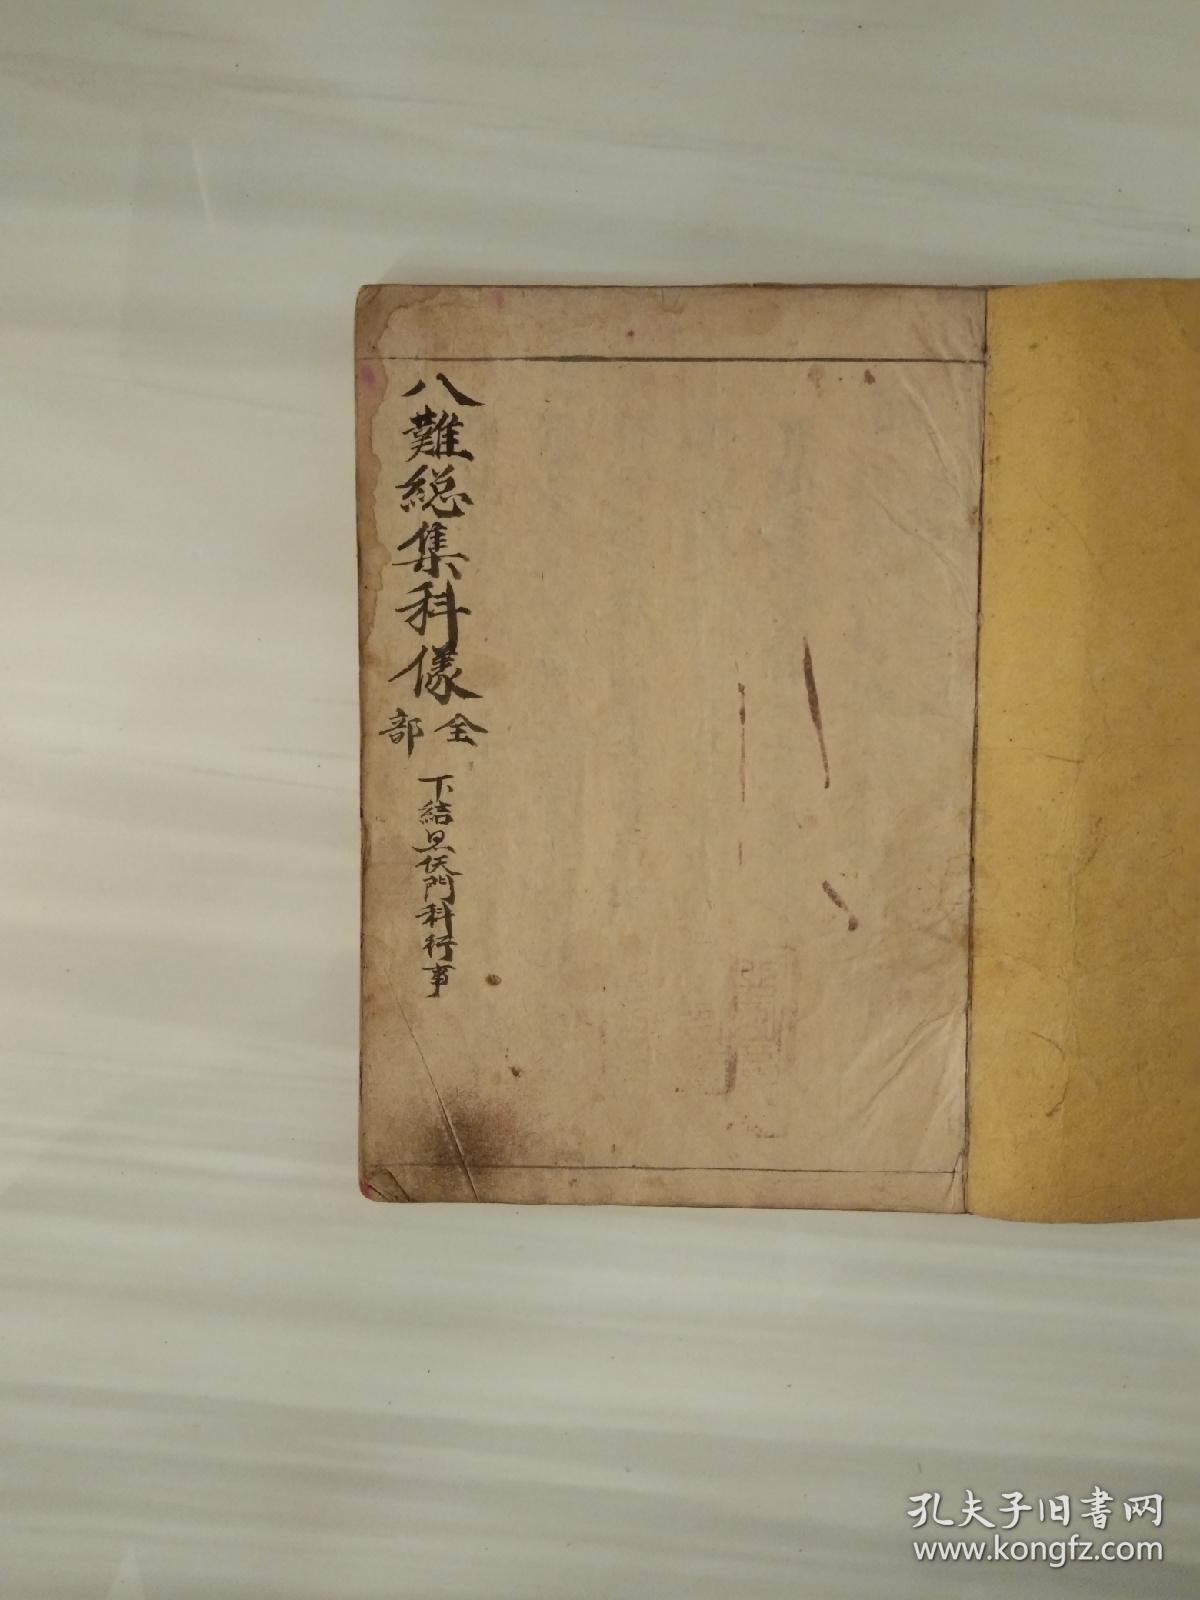 八難総集科儀
全部
下結界伏門科行事
孔夫子旧书网
www.kongfz.com